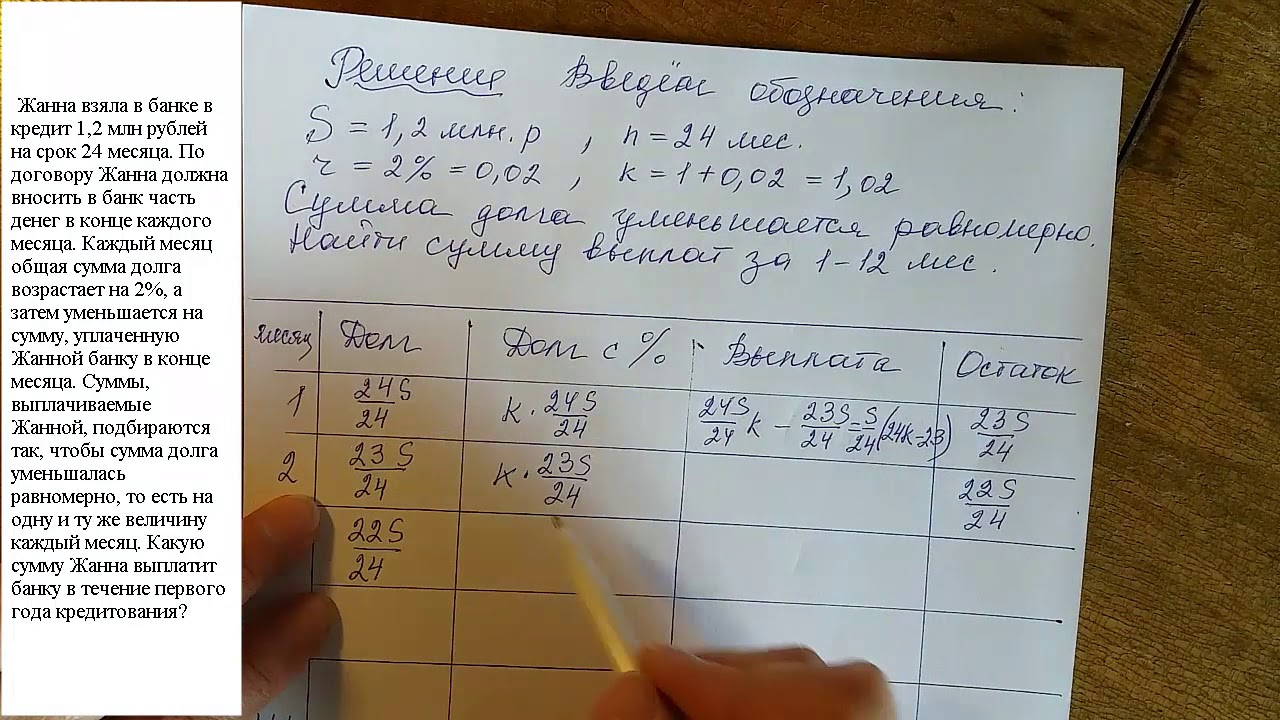 Жанна взяла в банке в
кредит 1,2 млн рублей
на срок 24 месяца. По
договору Жанна должна
вносить в банк часть
денег в конце каждого
месяца. Каждый месяц
общая сумма долга
возрастает на 2%, а
затем уменьшается на
сумму, уплаченную
Жанной банку в конце
месяца. Суммы,
выплачиваемые
Жанной, подбираются
так, чтобы сумма долга
уменьшалась
равномерно, то есть на
одну и ту же величину
каждый месяц. Какую
сумму Жанна выплатит
банку в течение первого
года кредитования?
Решение Введём обозначения:
S = 1,2 млн. р , n = 24 мес.
r = 2% = 0,02 , k = 1 + 0,02 = 1,02
Сумма долга уменьшается равномерно.
Найти сумму выплат за 1-12 мес.
месяц Долг Долг с % Выплата Остаток
1 24S/24 k · 24S/24 24S/24 k - 23S/24 = S/24 (24k-23) 23S/24
2 23S/24 k · 23S/24 22S/24
22S/24